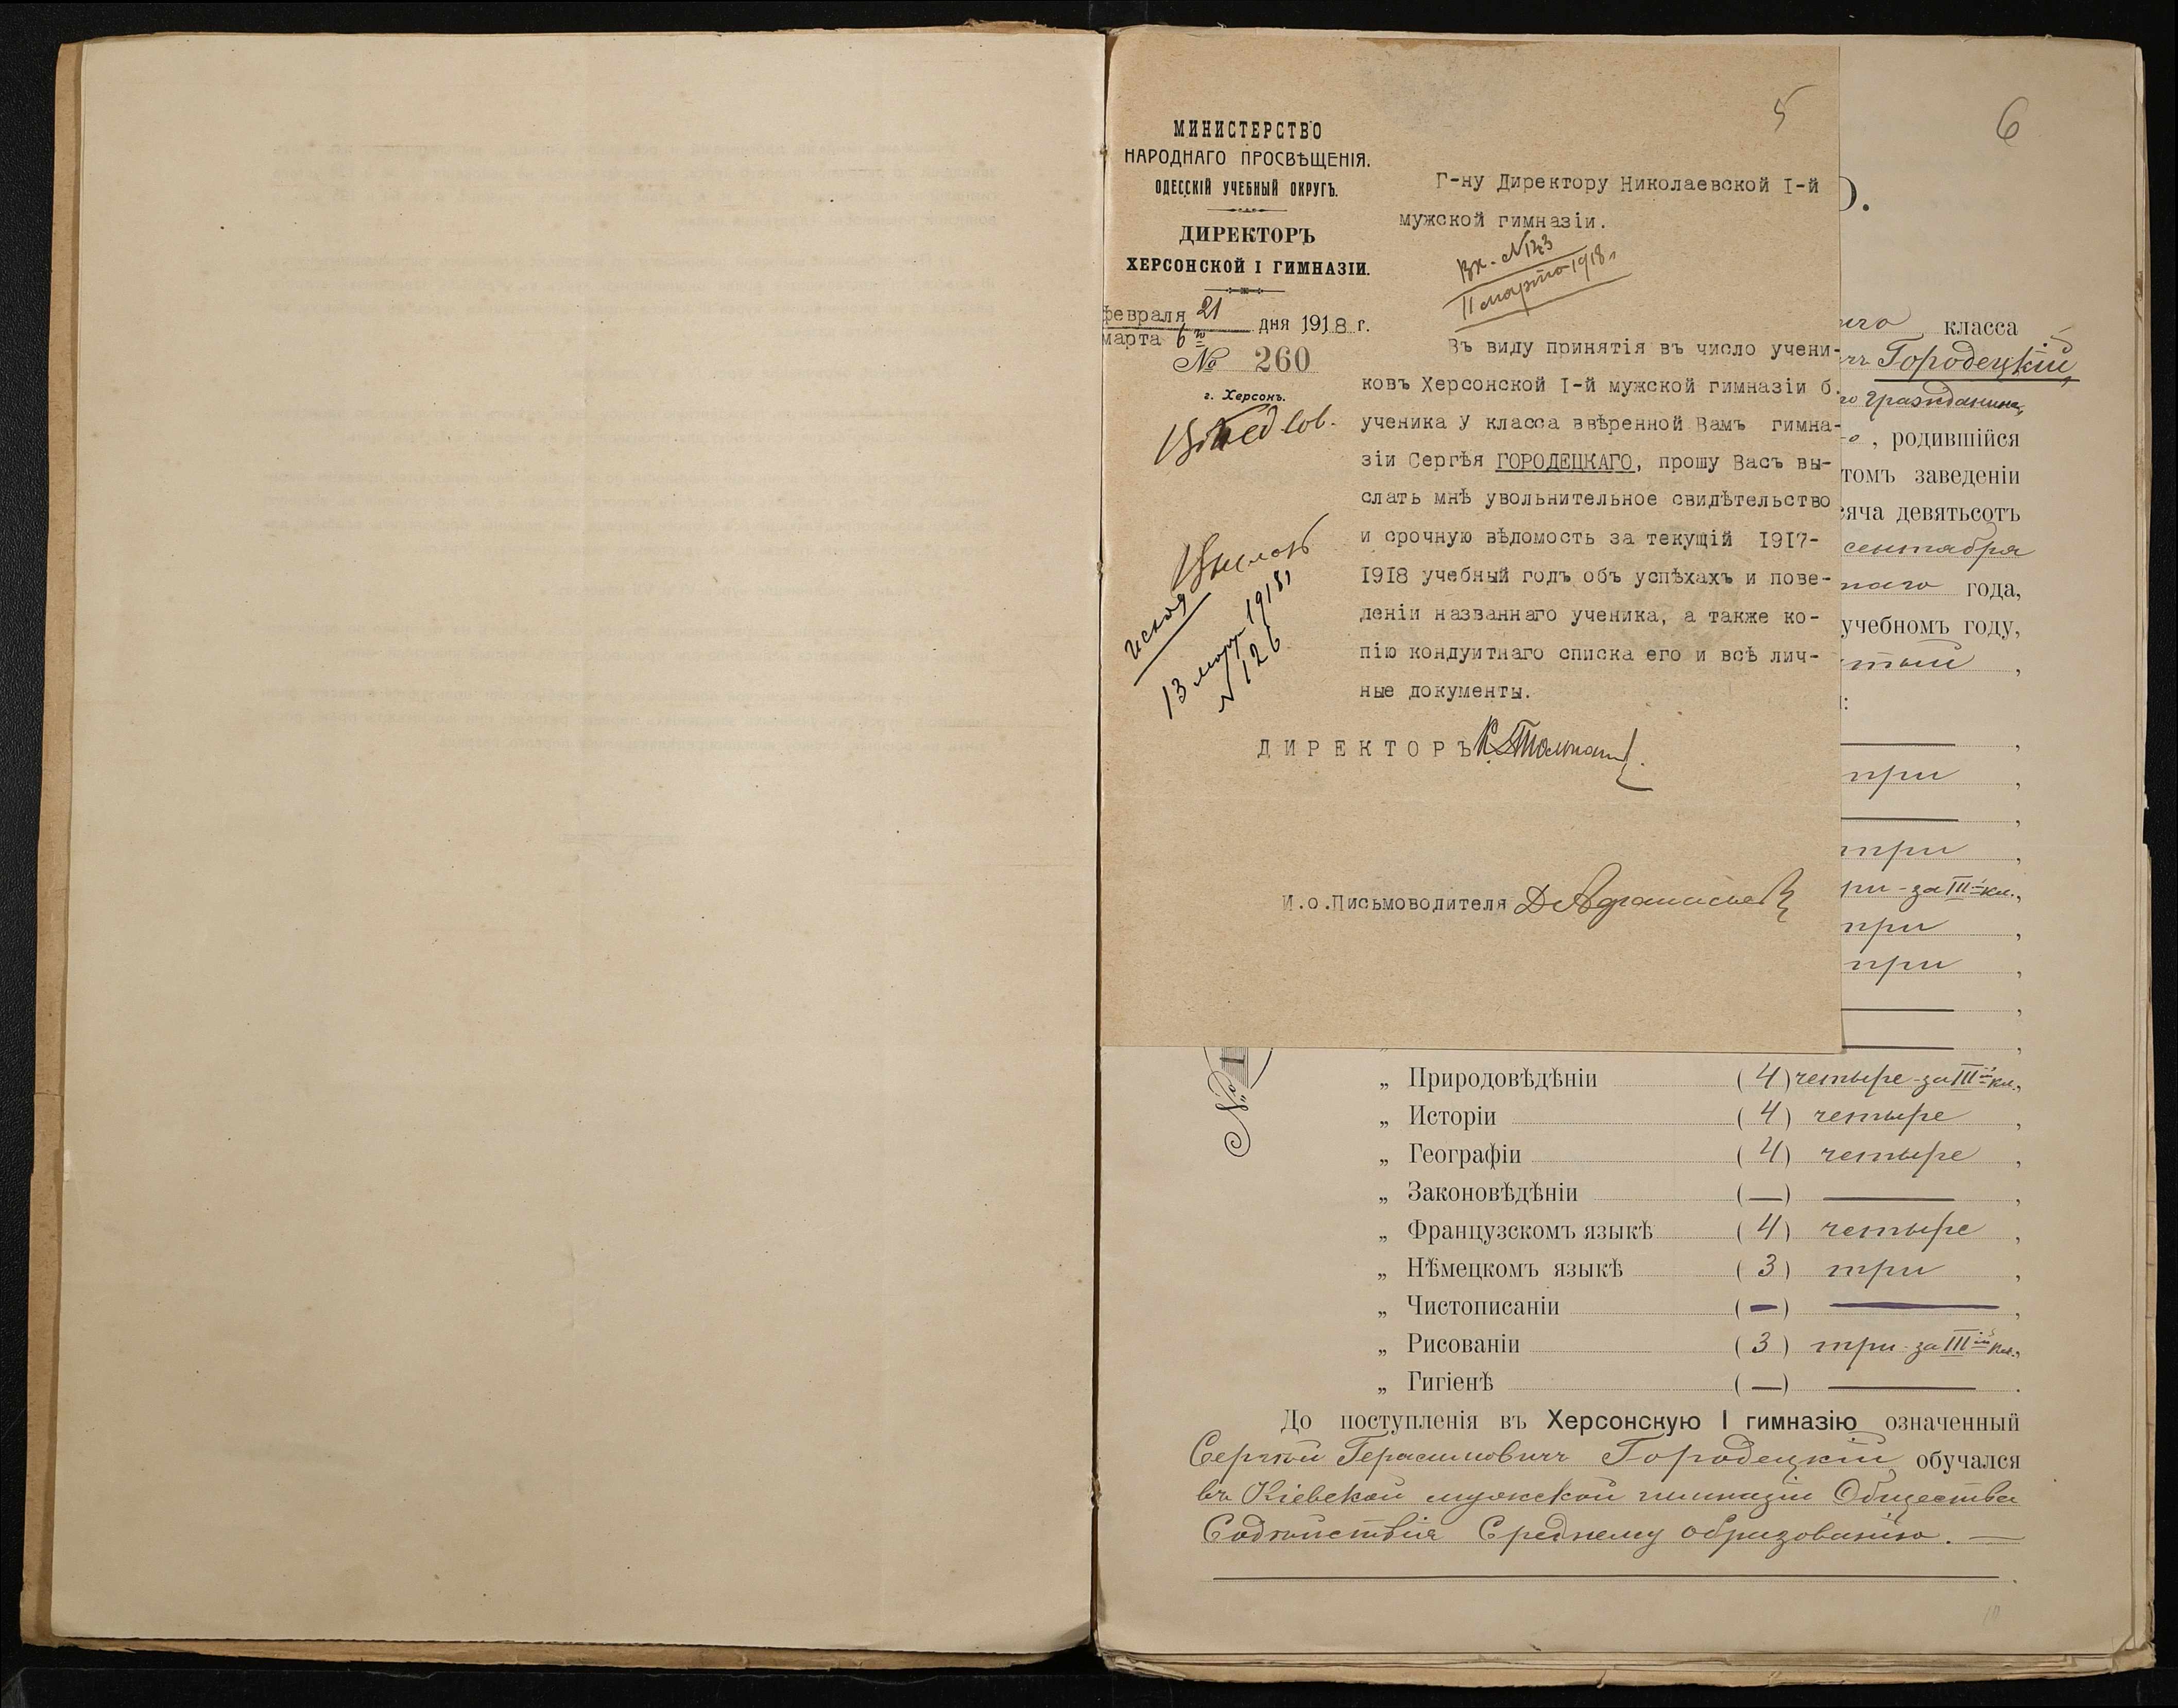 5
6
МИНИСТЕРСТВО
НАРОДНАГО ПРОСВѢЩЕНІЯ.
ОДЕССКІЙ УЧЕБНЫЙ ОКРУГЪ.
ДИРЕКТОРЪ
ХЕРСОНСКОЙ I ГИМНАЗІИ.
февраля 21
марта 6
дня 1918 г.
№ 260
г. Херсонъ.
Г-ну Директору Николаевской I-й
мужской гимназіи.
Вх. №123
11 марта 1918 г.
Въ виду принятія въ число учени-
ковъ Херсонской I-й мужской гимназіи б.
ученика У класса ввѣренной Вамъ гимна-
зіи Сергѣя ГОРОДЕЦКАГО, прошу Васъ вы-
слать мнѣ увольнительное свидѣтельство
и срочную вѣдомость за текущій 1917-
1918 учебный годъ объ успѣхахъ и пове-
деніи названнаго ученика, а также ко-
пію кондуитнаго списка его и всѣ лич-
ные документы.
13 март 1918 г.
№ 126
ДИРЕКТОРЪ
И.о.Письмоводителя
класса
Городецкій,
гражданина,
, родившійся
томъ заведеніи
сяча девятьсотъ
сентября
года,
учебномъ году,
тый ,
три ,
три ,
три - за III й кл.,
три ,
три ,
№
„ Природовѣдѣніи (4) четыре - за III й кл.,
„ Исторіи (4) четыре ,
„ Географіи (4) четыре ,
„ Законовѣдѣніи (—) — ,
„ Французскомъ языкѣ (4) четыре ,
„ Нѣмецкомъ языкѣ (3) три ,
„ Чистописаніи (—) — ,
„ Рисованіи (3) три - за III й кл.,
„ Гигіенѣ (—) — .
До поступленія въ Херсонскую I гимназію означенный
Сергѣй Герасимовичъ Городецкій обучался
въ Кіевской мужской гимназіи Общества
Содѣйствія Среднему образованію. —